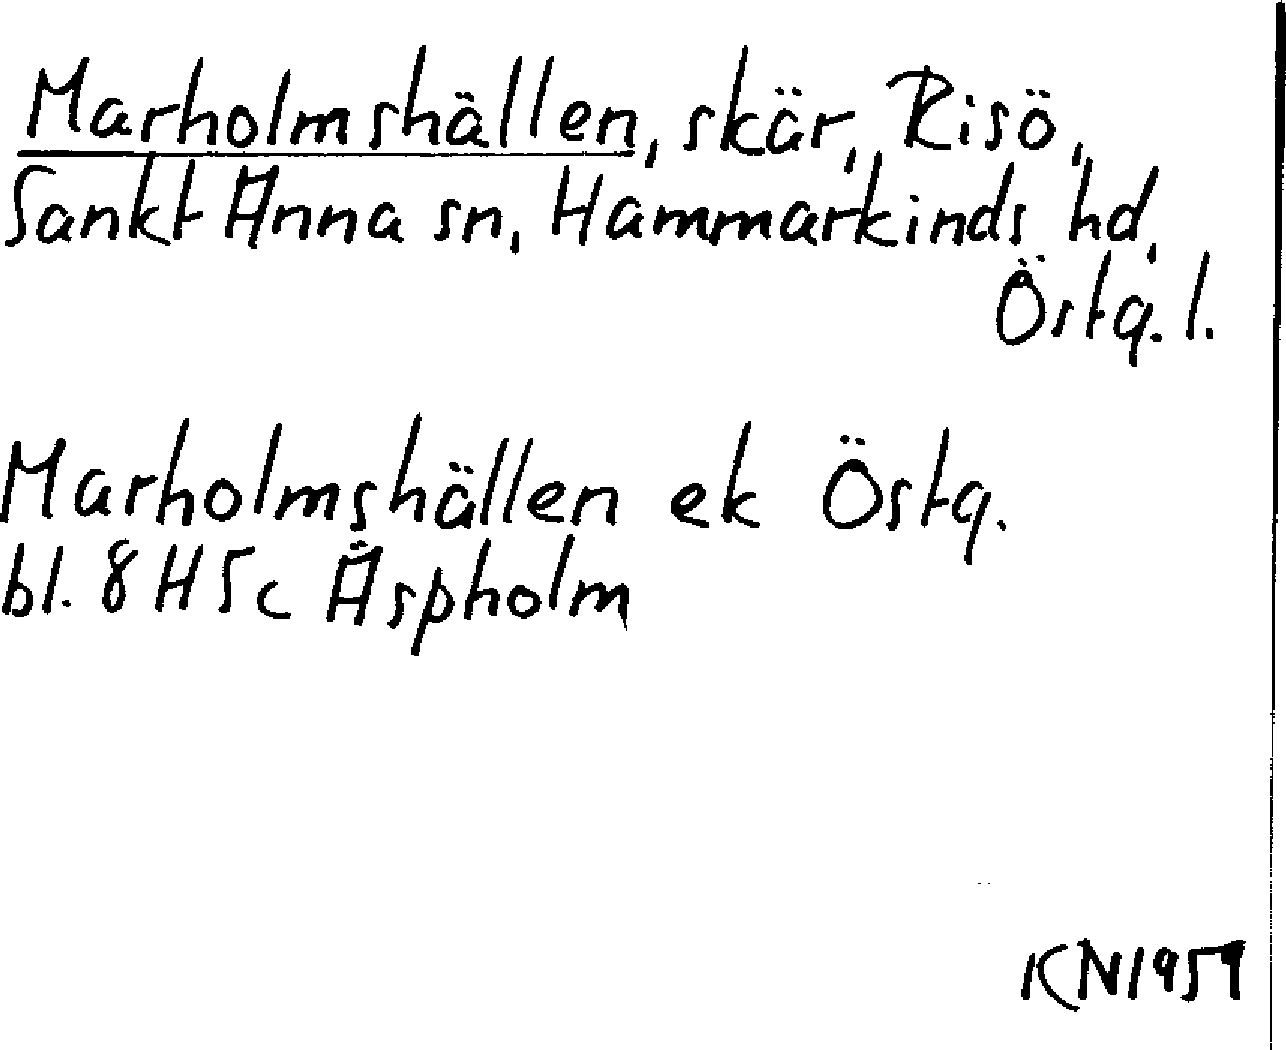 Marholmshällen, skär, Risö,
Sankt Anna sn, Hammarkinds hd,
Östg. l.
Marholmshällen ek Östg.
bl. 8 H 5c Äspholm
KN 1959